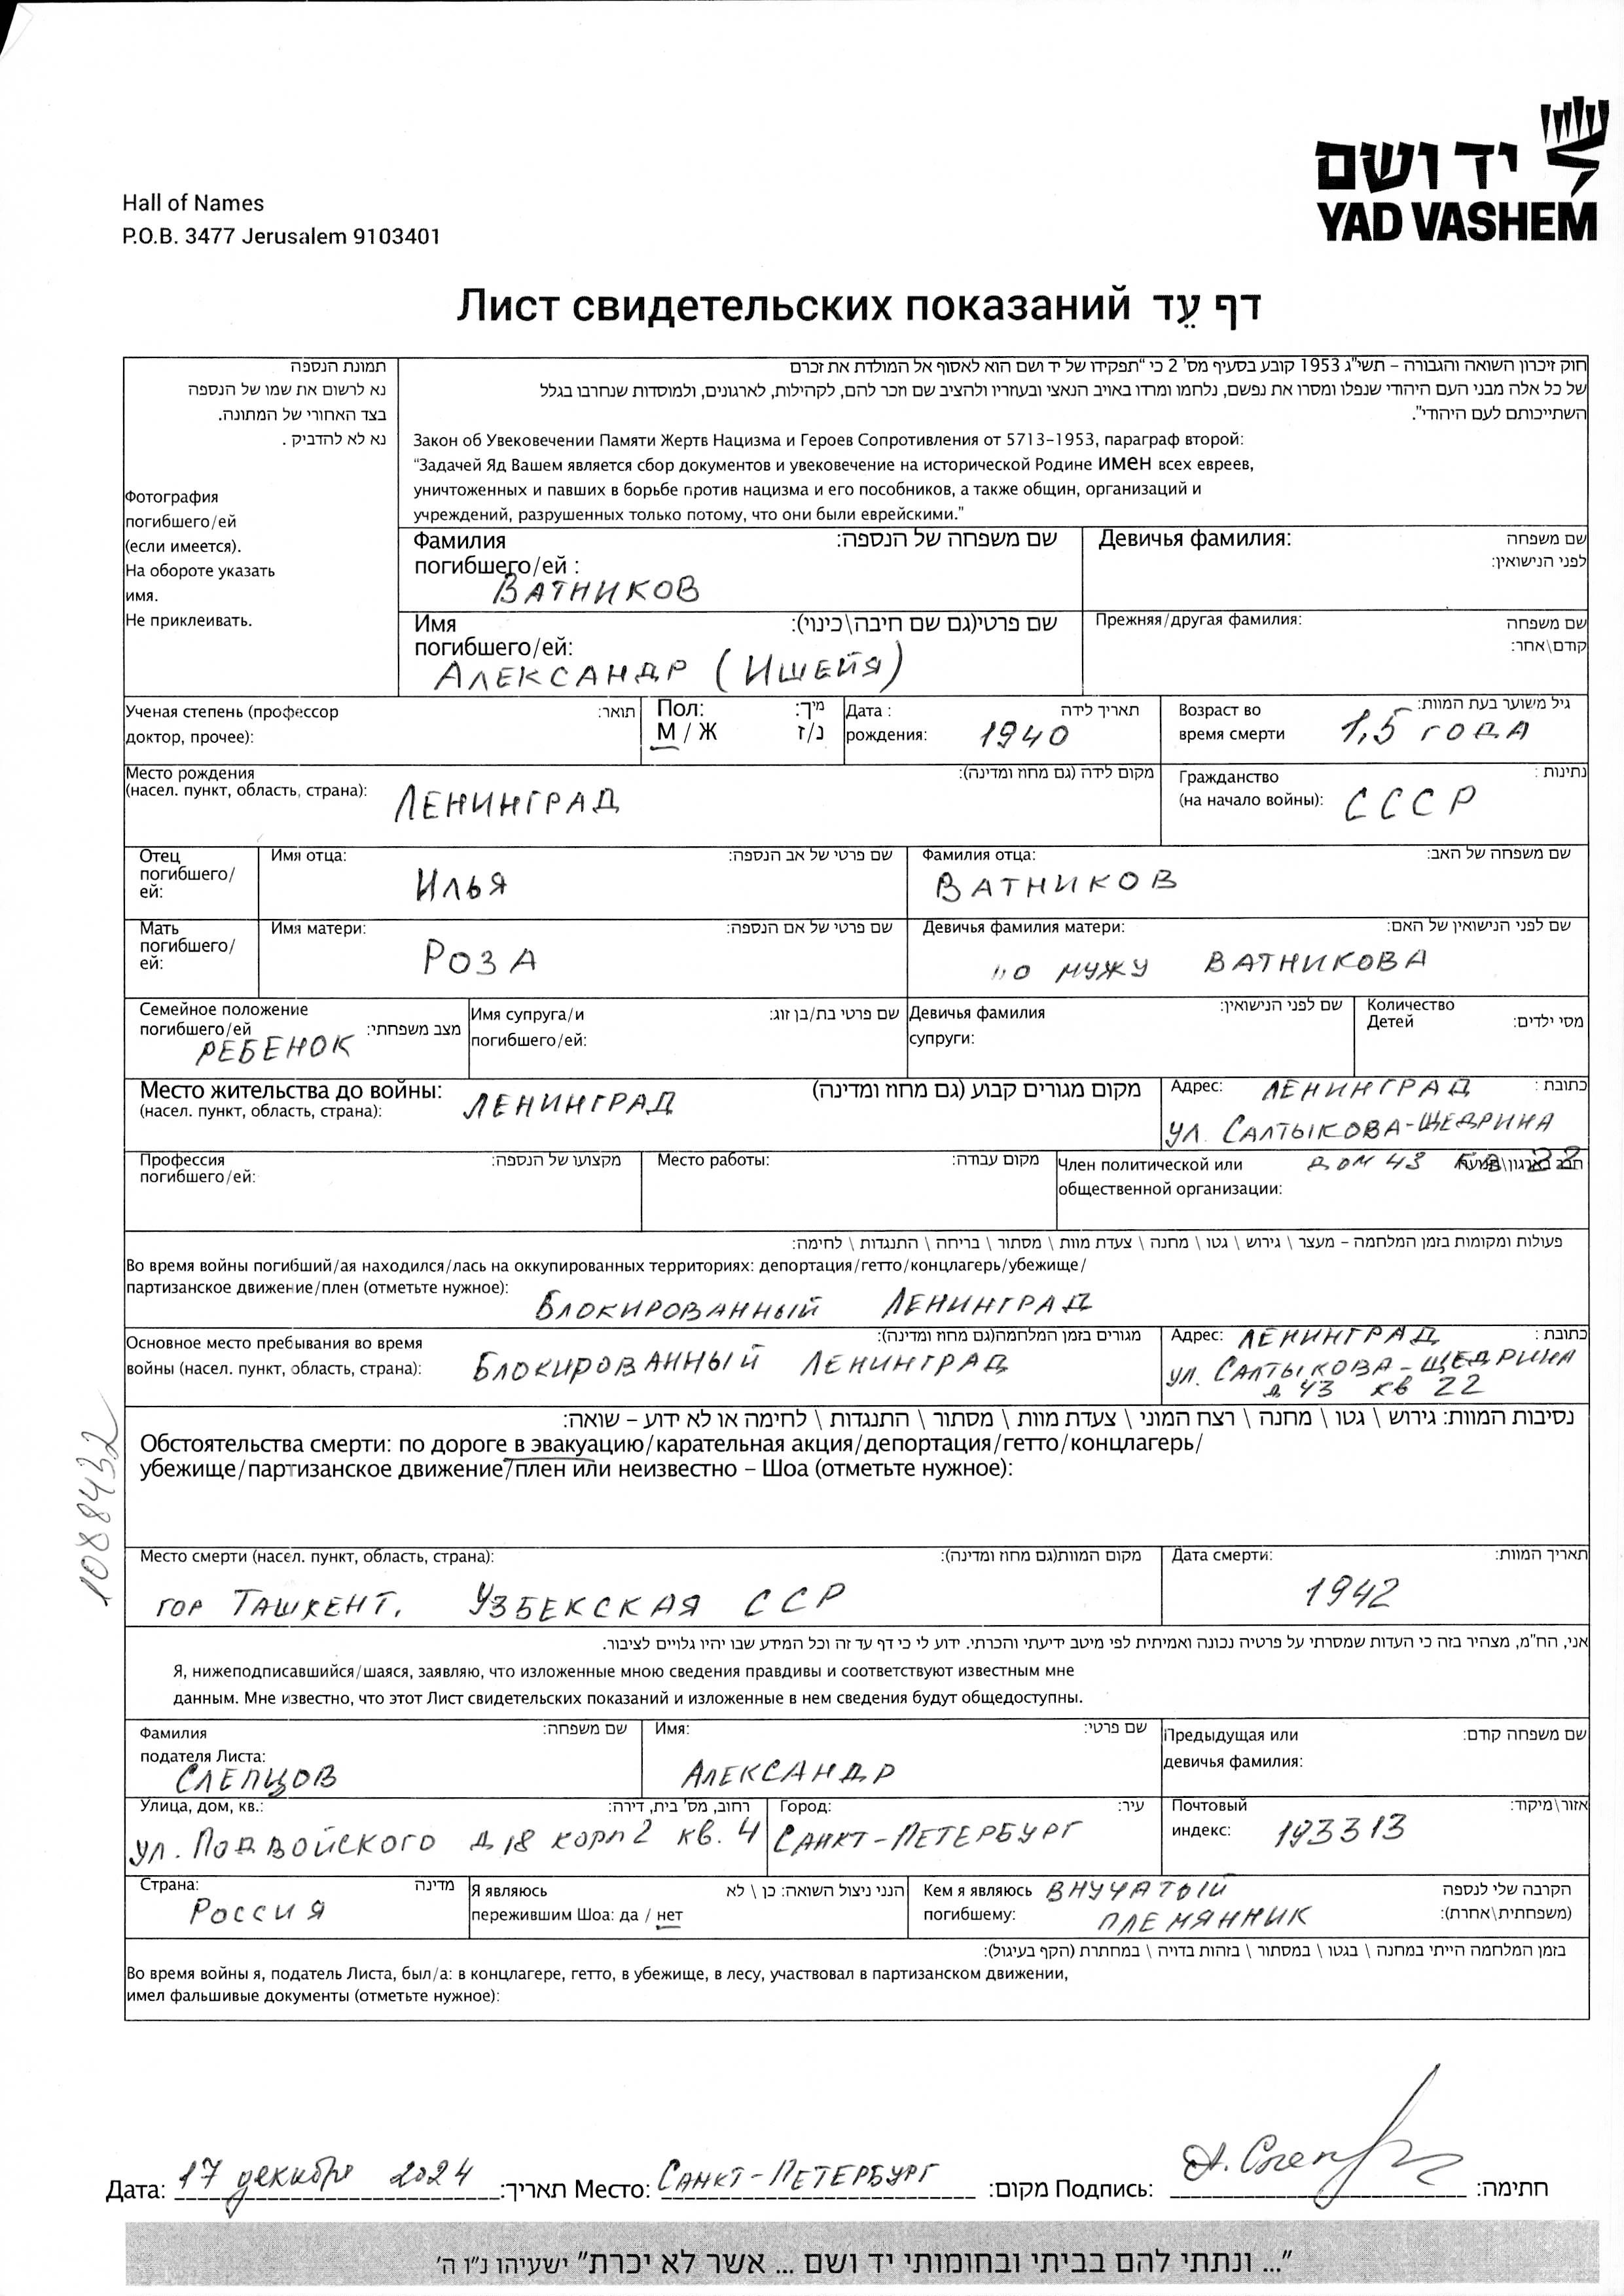 יד ושם
YAD VASHEM
Hall of Names
P.O.B. 3477 Jerusalem 9103401
Лист свидетельских показаний דף עֵד
תמונת הנספה
נא לרשום את שמו של הנספה
בצד האחורי של המתונה.
נא לא להדביק .
Фотография
погибшего/ей
(если имеется).
На обороте указать
имя.
Не приклеивать.
חוק זיכרון השואה והגבורה – תשי"ג 1953 קובע בסעיף מס' 2 כי "תפקידו של יד ושם הוא לאסוף אל המולדת את זכרם
של כל אלה מבני העם היהודי שנפלו ומסרו את נפשם, נלחמו ומרדו באויב הנאצי ובעוזריו ולהציב שם וזכר להם, לקהילות, לארגונים, ולמוסדות שנחרבו בגלל
השתייכותם לעם היהודי".
Закон об Увековечении Памяти Жертв Нацизма и Героев Сопротивления от 5713–1953, параграф второй:
"Задачей Яд Вашем является сбор документов и увековечение на исторической Родине имен всех евреев,
уничтоженных и павших в борьбе против нацизма и его пособников, а также общин, организаций и
учреждений, разрушенных только потому, что они были еврейскими."
Фамилия שם משפחה של הנספה:
погибшего/ей :
ВАТНИКОВ
Девичья фамилия: שם משפחה
לפני הנישואין:
Имя שם פרטי(גם שם חיבה\כינוי):
погибшего/ей:
АЛЕКСАНДР (ИШЕЙЯ)
Прежняя/другая фамилия: שם משפחה
קודם\אחר:
Ученая степень (профессор תואר:
доктор, прочее):
Пол: מיך:
М / Ж נ/ז
Дата : תאריך לידה
рождения: 1940
Возраст во גיל משוער בעת המוות:
время смерти 1,5 ГОДА
Место рождения מקום לידה (גם מחוז ומדינה):
(насел. пункт, область, страна): ЛЕНИНГРАД
Гражданство נתינות :
(на начало войны): СССР
Отец
погибшего/
ей:
Имя отца: שם פרטי של אב הנספה:
ИЛЬЯ
Фамилия отца: שם משפחה של האב:
ВАТНИКОВ
Мать
погибшего/
ей:
Имя матери: שם פרטי של אם הנספה:
РОЗА
Девичья фамилия матери: שם לפני הנישואין של האם:
ПО МУЖУ ВАТНИКОВА
Семейное положение
погибшего/ей מצב משפחתי:
РЕБЕНОК
Имя супруга/и שם פרטי בת/בן זוג:
погибшего/ей:
Девичья фамилия שם לפני הנישואין:
супруги:
Количество
Детей מסי ילדים:
Место жительства до войны: מקום מגורים קבוע (גם מחוז ומדינה)
(насел. пункт, область, страна): ЛЕНИНГРАД
Адрес: ЛЕНИНГРАД כתובת :
УЛ. САЛТЫКОВА-ЩЕДРИНА
ДОМ 43 КВ 22
Профессия מקצועו של הנספה:
погибшего/ей:
Место работы: מקום עבודה:
Член политической или
общественной организации:
פעולות ומקומות בזמן המלחמה – מעצר \ גירוש \ גטו \ מחנה \ צעדת מוות \ מסתור \ בריחה \ התנגדות \ לחימה:
Во время войны погибший/ая находился/лась на оккупированных территориях: депортация/гетто/концлагерь/убежище/
партизанское движение/плен (отметьте нужное):
БЛОКИРОВАННЫЙ ЛЕНИНГРАД
Основное место пребывания во время מגורים בזמן המלחמה(גם מחוז ומדינה):
войны (насел. пункт, область, страна): БЛОКИРОВАННЫЙ ЛЕНИНГРАД
Адрес: ЛЕНИНГРАД כתובת :
УЛ. САЛТЫКОВА-ЩЕДРИНА
Д 43 КВ 22
נסיבות המוות: גירוש \ גטו \ מחנה \ רצח המוני \ צעדת מוות \ מסתור \ התנגדות \ לחימה או לא ידוע – שואה:
Обстоятельства смерти: по дороге в эвакуацию/карательная акция/депортация/гетто/концлагерь/
убежище/партизанское движение/плен или неизвестно – Шоа (отметьте нужное):
108432
Место смерти (насел. пункт, область, страна): מקום המוות(גם מחוז ומדינה):
ГОР ТАШКЕНТ, УЗБЕКСКАЯ ССР
Дата смерти: תאריך המוות:
1942
אני, הח"מ, מצהיר בזה כי העדות שמסרתי על פרטיה נכונה ואמיתית לפי מיטב ידיעתי והכרתי. ידוע לי כי דף עד זה וכל המידע שבו יהיו גלויים לציבור.
Я, нижеподписавшийся/шаяся, заявляю, что изложенные мною сведения правдивы и соответствуют известным мне
данным. Мне известно, что этот Лист свидетельских показаний и изложенные в нем сведения будут общедоступны.
Фамилия שם משפחה:
подателя Листа:
СЛЕПЦОВ
Имя: שם פרטי:
АЛЕКСАНДР
Предыдущая или שם משפחה קודם:
девичья фамилия:
Улица, дом, кв.: רחוב, מס' בית, דירה:
УЛ. ПОДВОЙСКОГО Д 18 КОРП 2 КВ. 4
Город: עיר:
САНКТ-ПЕТЕРБУРГ
Почтовый אזור\מיקוד:
индекс: 193313
Страна: מדינה
РОССИЯ
Я являюсь הנני ניצול השואה: כן \ לא
пережившим Шоа: да / нет
Кем я являюсь ВНУЧАТЫЙ הקרבה שלי לנספה
погибшему: ПЛЕМЯННИК (משפחתית\אחרת):
בזמן המלחמה הייתי במחנה \ בגטו \ במסתור \ בזהות בדויה \ במחתרת (הקף בעיגול):
Во время войны я, податель Листа, был/а: в концлагере, гетто, в убежище, в лесу, участвовал в партизанском движении,
имел фальшивые документы (отметьте нужное):
Дата: 17 декабря 2024 תאריך: Место: САНКТ-ПЕТЕРБУРГ מקום: Подпись: А. Слеп חתימה:
"... ונתתי להם בביתי ובחומותי יד ושם ... אשר לא יכרת" ישעיהו נ"ו ה'